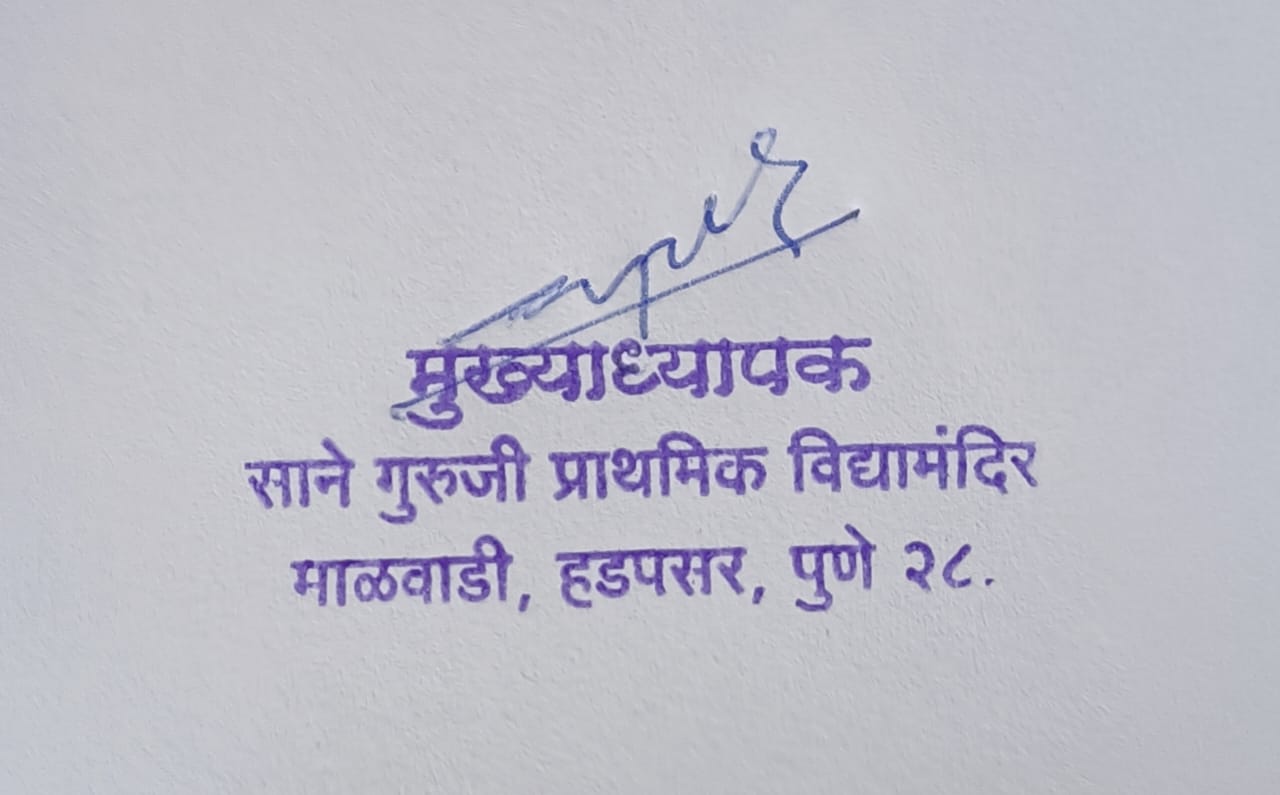 मुख्याध्यापक
साने गुरुजी प्राथमिक विद्यामंदिर
माळवाडी, हडपसर, पुणे २८.